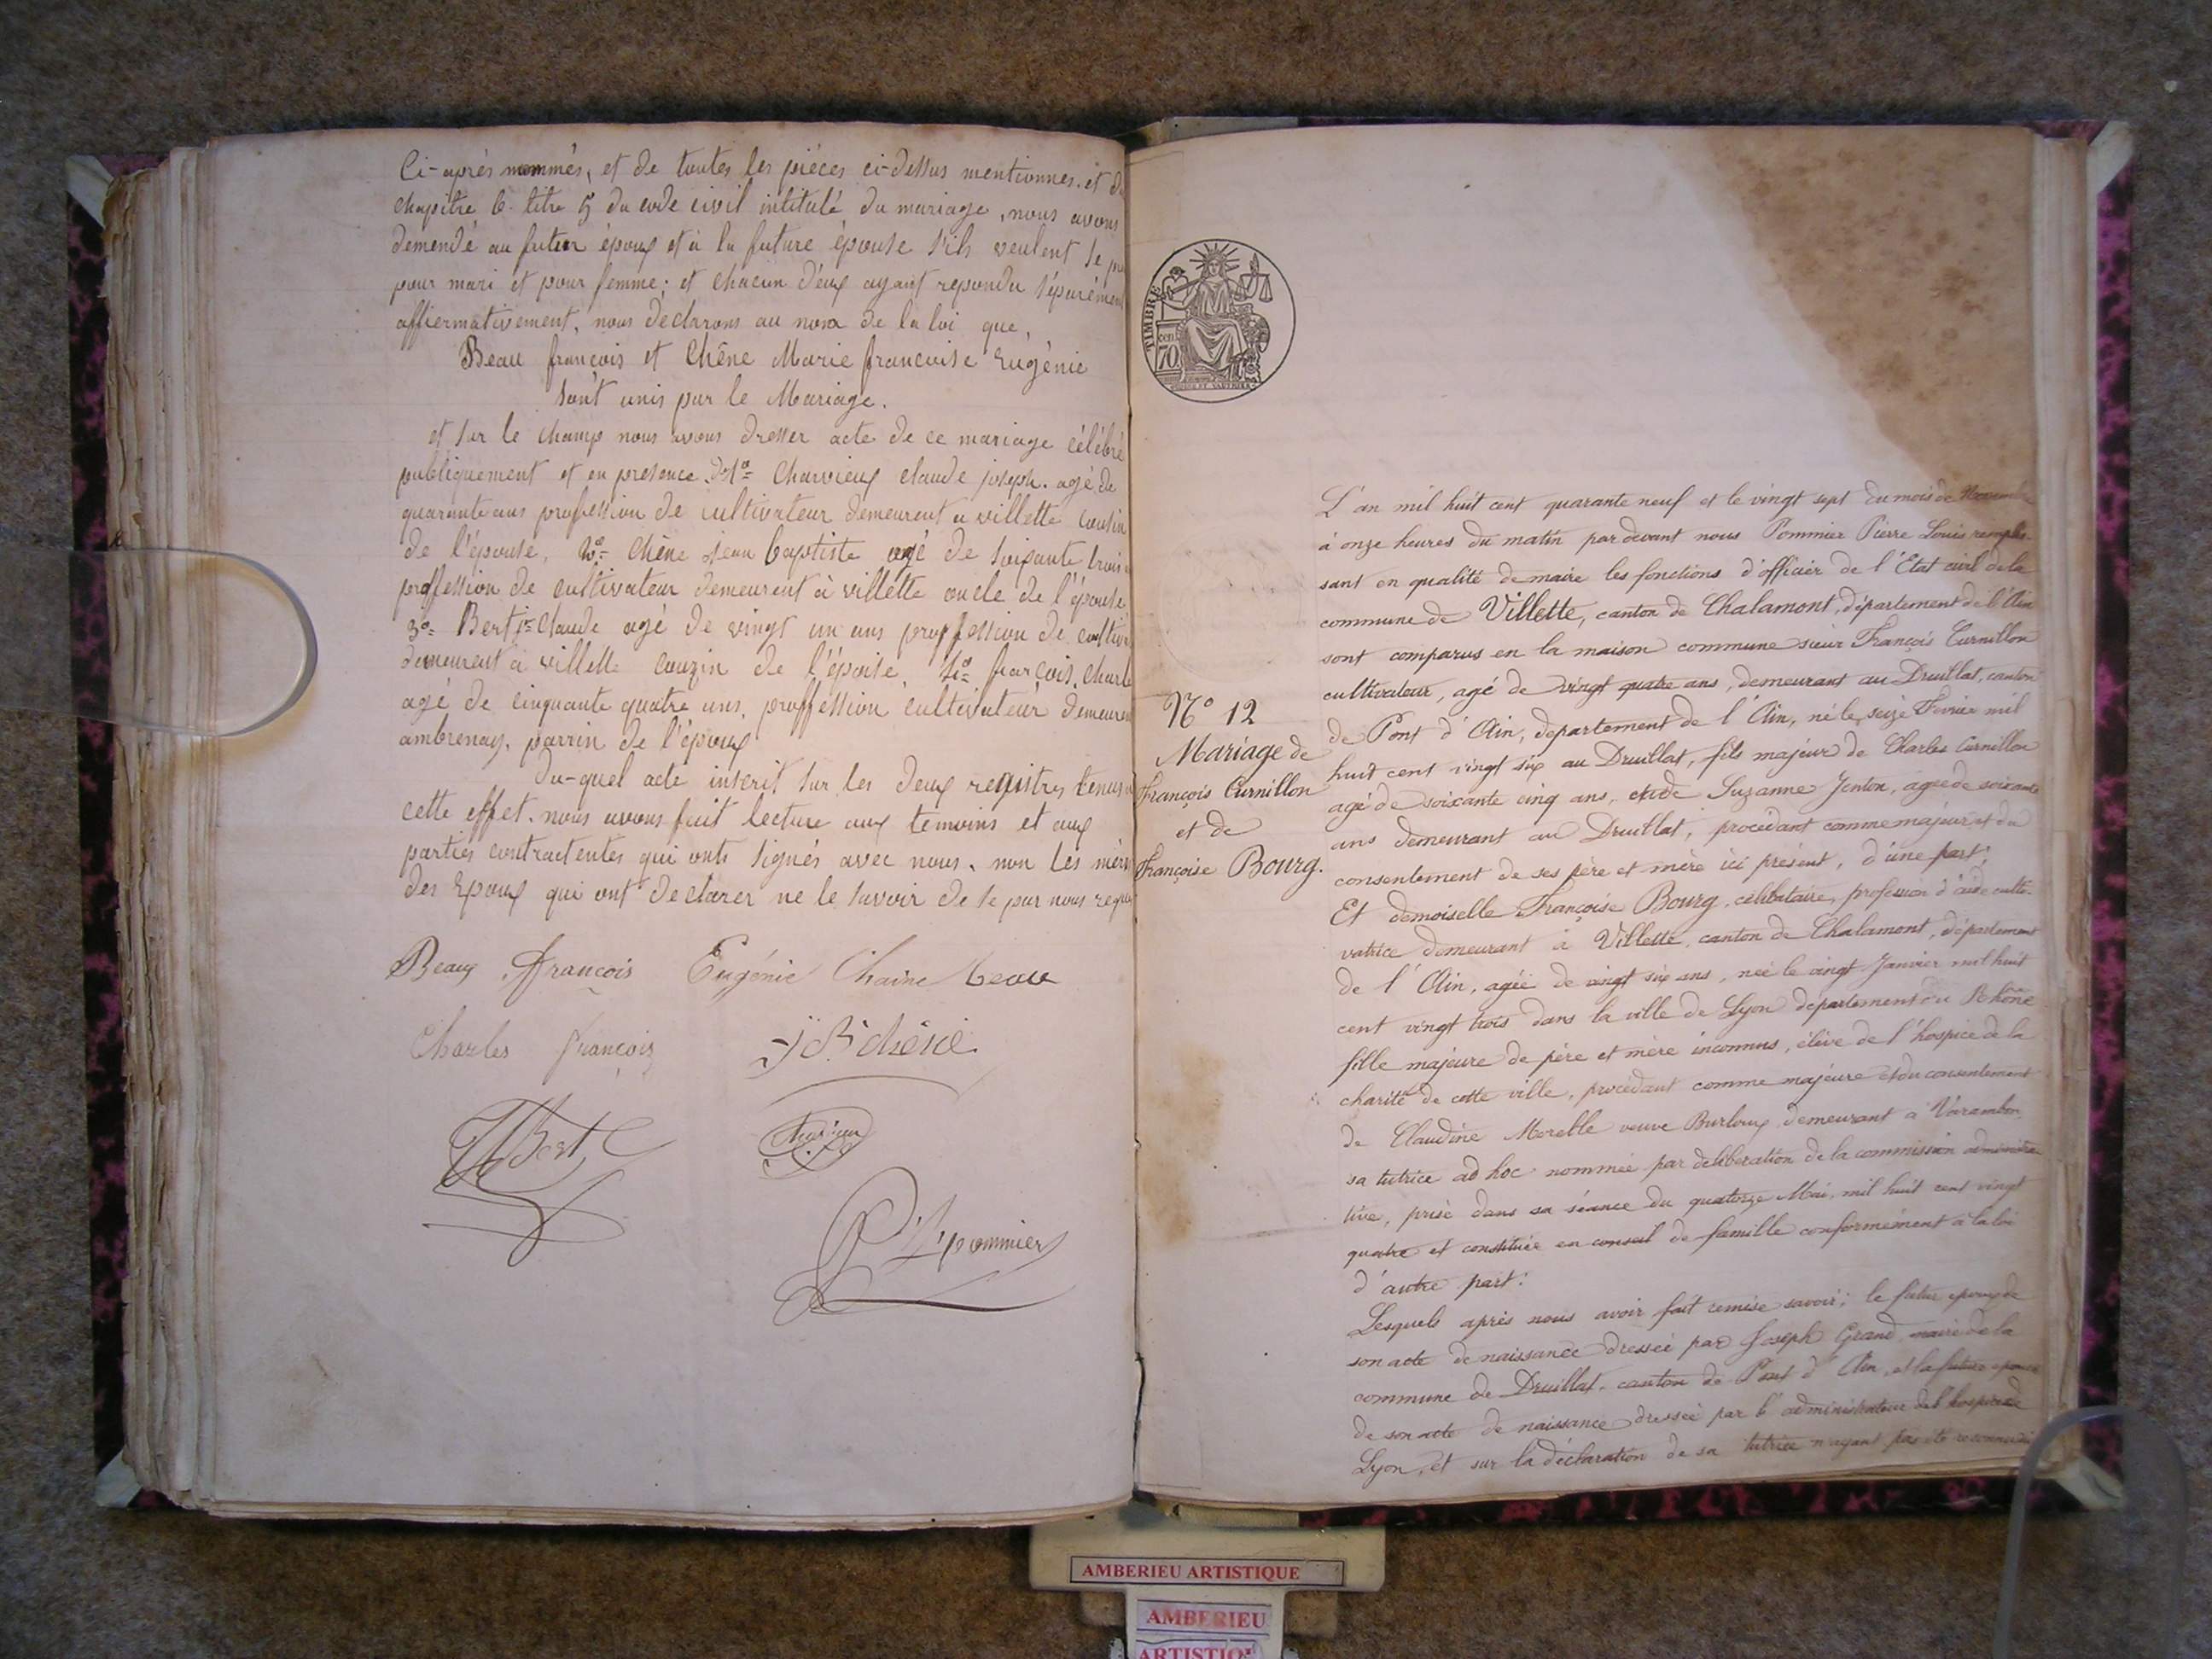 Ci-après nommés, et de toutes les pièces ci-dessus mentionnes. et du
chapitre 6. titre 5 du code civil intitulé du mariage, nous avons
demendé au futur époux et à la future épouse s'ils veulent se
pour mari et pour femme; et chacun d'eux ayant repondu séparément
affiermativement, nous declarons au nom de la loi que,
Beau françois et Chêne Marie francoise Eugénie
sont unis par le Mariage.
et sur le champ nous avons dresser acte de ce mariage célébré
publiquement et en presence. d 1º= Charvieux claude joseph. agé de
quarante ans profession de cultivateur demeurent a villette cousin
de l'épouse, 2º= Chêne Jean baptiste agé de soixante trois
proffession de cultivateur demeurent à villette oncle de l'épouse
3º= Bert claude agé de vingt un ans proffession de cultiv
demeurent à villette couzin de l'épouse, 4º= françois Charle
agé de cinquante quatre uns, proffession cultivateur demeuren
ambrenay, parrin de l'époux
Du-quel acte inscrit sur les deux registres tenus
cette effet. nous avons fait lecture aux temoins et aux
parties contractentes qui onts signés avec nous. non les mères
des Epoux qui ont declarer ne le savoir de se par nous requ
Beaux françois Eugénie Chaine beau
Charles françois J Bte chêne
Bert C
Charvieux
P L pommier
TIMBRE
cen.
70
Nº 12
Mariage de
François Curnillon
et de
Françoise Bourg.
L'an mil huit cent quarante neuf et le vingt sept du mois de Novembre
à onze heures du matin par devant nous Pommier Pierre Louis remplis-
sant en qualité de maire les fonctions d'officier de l'Etat civil de la
commune de Villette, canton de Chalamont, département de l'Ain
sont comparus en la maison commune sieur François Curnillon
cultivateur, agé de vingt quatre ans, demeurant au Druillat, canton
de Pont d'Ain, departement de l'Ain, né le seize Fevrier mil
huit cent vingt six au Druillat, fils majeur de Charles Curnillon
agé de soixante cinq ans, et de Suzanne Jenton, agée de soixante
ans demeurant au Druillat, procédant comme majeur et du
consentement de ses père et mère ici présent, d'une part;
Et demoiselle Françoise Bourg, celibataire, profession d'aide culti-
vatrice demeurant à Villette, canton de Chalamont, département
de l'Ain, agée de vingt six ans, née le vingt Janvier mil huit
cent vingt trois dans la ville de Lyon département du Rhône
fille majeure de père et mère inconnus, élève de l'hospice de la
charité de cette ville, procédant comme majeure et du consentement
de Claudine Morelle veuve Burloux demeurant à Varambon
sa tutrice ad hoc nommée par deliberation de la commission administra-
tive, prise dans sa séance du quatorze Mai, mil huit cent vingt
quatre et constituée en conseil de famille conformément à la loi
d'autre part:
Lesquels après nous avoir fait remise savoir; le futur epoux de
son acte de naissance dressée par Joseph Grand maire de la
commune de Druillat, canton de Pont d'Ain, et la future epouse
de son acte de naissance dressée par l'administrateur de l'hospice de
Lyon, et sur la déclaration de sa tutrice n'ayant pas été reconnu
AMBERIEU ARTISTIQUE
AMBERIEU